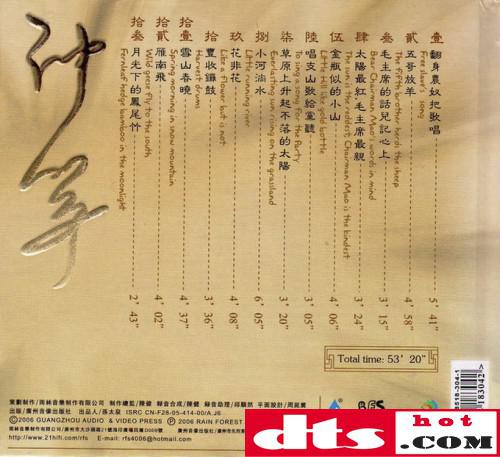 壹 翻身農奴把歌唱
Free slaver's song
5' 41"
貳 五哥放羊
The fifth brother herds the sheep
4' 58"
叁 毛主席的話兒記心上
Bear Chairman Mao's words in mind
3' 15"
肆 太陽最紅毛主席最親
The sun is the reddest, Chairman Mao is the kindest
3' 24"
伍 金瓶似的小山
Little Hill like a gold bottle
4' 06"
陸 唱支山歌給黨聽
To sing a song for the Party
3' 05"
柒 草原上升起不落的太陽
Everlasting sun rising on the grassland
3' 20"
捌 小河淌水
Little running river
6' 05"
玖 花非花
Like a flower but is not
4' 08"
拾 豐收鑼鼓
Harvest drums
3' 36"
拾壹 雪山春曉
Spring morning in snow mountain
4' 37"
拾貳 雁南飛
Wild geese fly to the south
4' 02"
拾叁 月光下的鳳尾竹
Fernleaf hedge bamboo in the moonlight
2' 43"
Total time: 53' 20"
策劃制作/雨林音樂制作有限公司 制作總監/陳健 錄音合成/陳健
出版/廣州音像出版社 出品人/孫太泉 ISRC CN-F28-05-414-00/A.J6
©2006 GUANGZHOU AUDIO & VIDEO PRESS ℗2006 RAIN FOREST
http://www.21hifi.com E-mail: rfs4006@hotmail.com
hot
dts.com